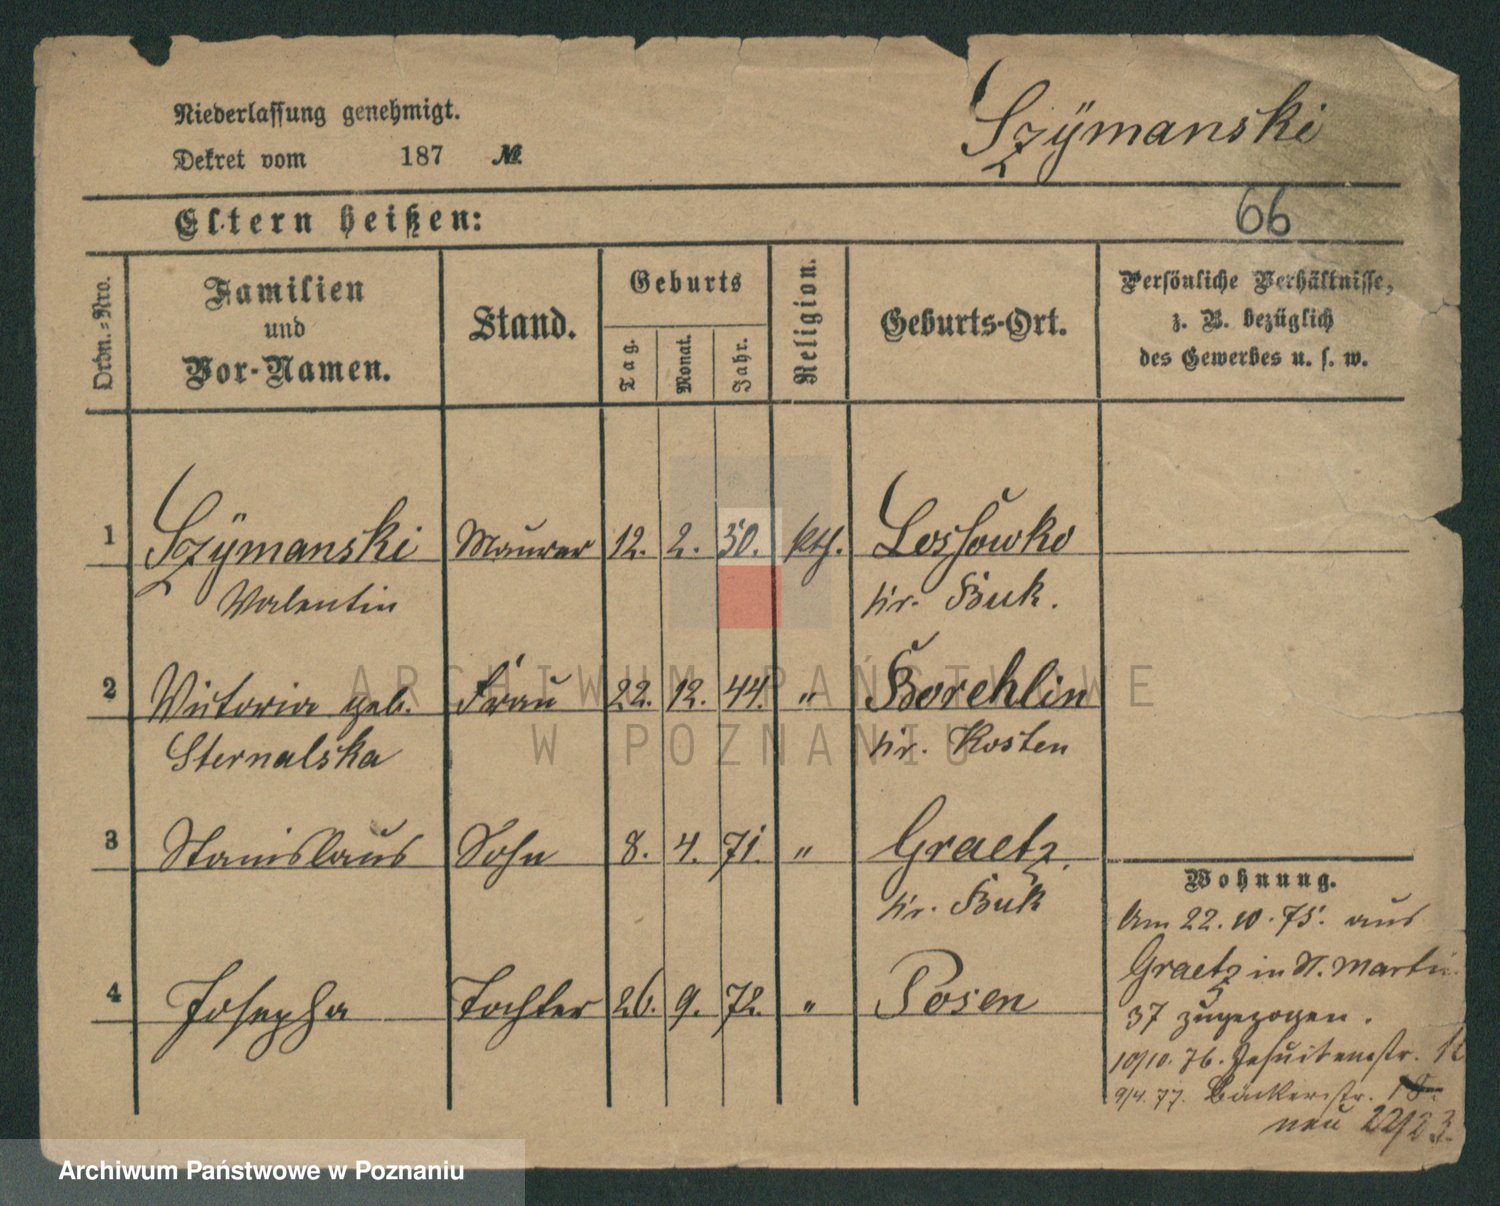 Niederlassung genehmigt.
Dekret vom 187 №
Szÿmanski
Eltern heißen:
66
Ordn.-Nro.
Familien und Vor-Namen.
Stand.
Geburts
Tag.
Monat.
Jahr.
Religion.
Geburts-Ort.
Persönliche Verhältnisse,
z. B. bezüglich
des Gewerbes u. s. w.
1 Szÿmanski Maurer 12. 2. 50. kth. Lossowko
Valentin Kr. Buk.
2 Victoria geb. Frau 22. 12. 44. " Borehlin
Sternalska Kr. Kosten
3 Stanislaus Sohn 8. 4. 71. " Graetz
Kr. Buk
4 Josepha Tochter 26. 9. 72. " Posen
Wohnung.
Am 22.10.75. aus
Graetz in St. Martin
37 zugezogen.
10/10. 76. Jesuitenstr.
9/4. 77. Bäckerstr.
neu 22/23.
ARCHIWUM PAŃSTWOWE
W POZNANIU
Archiwum Państwowe w Poznaniu